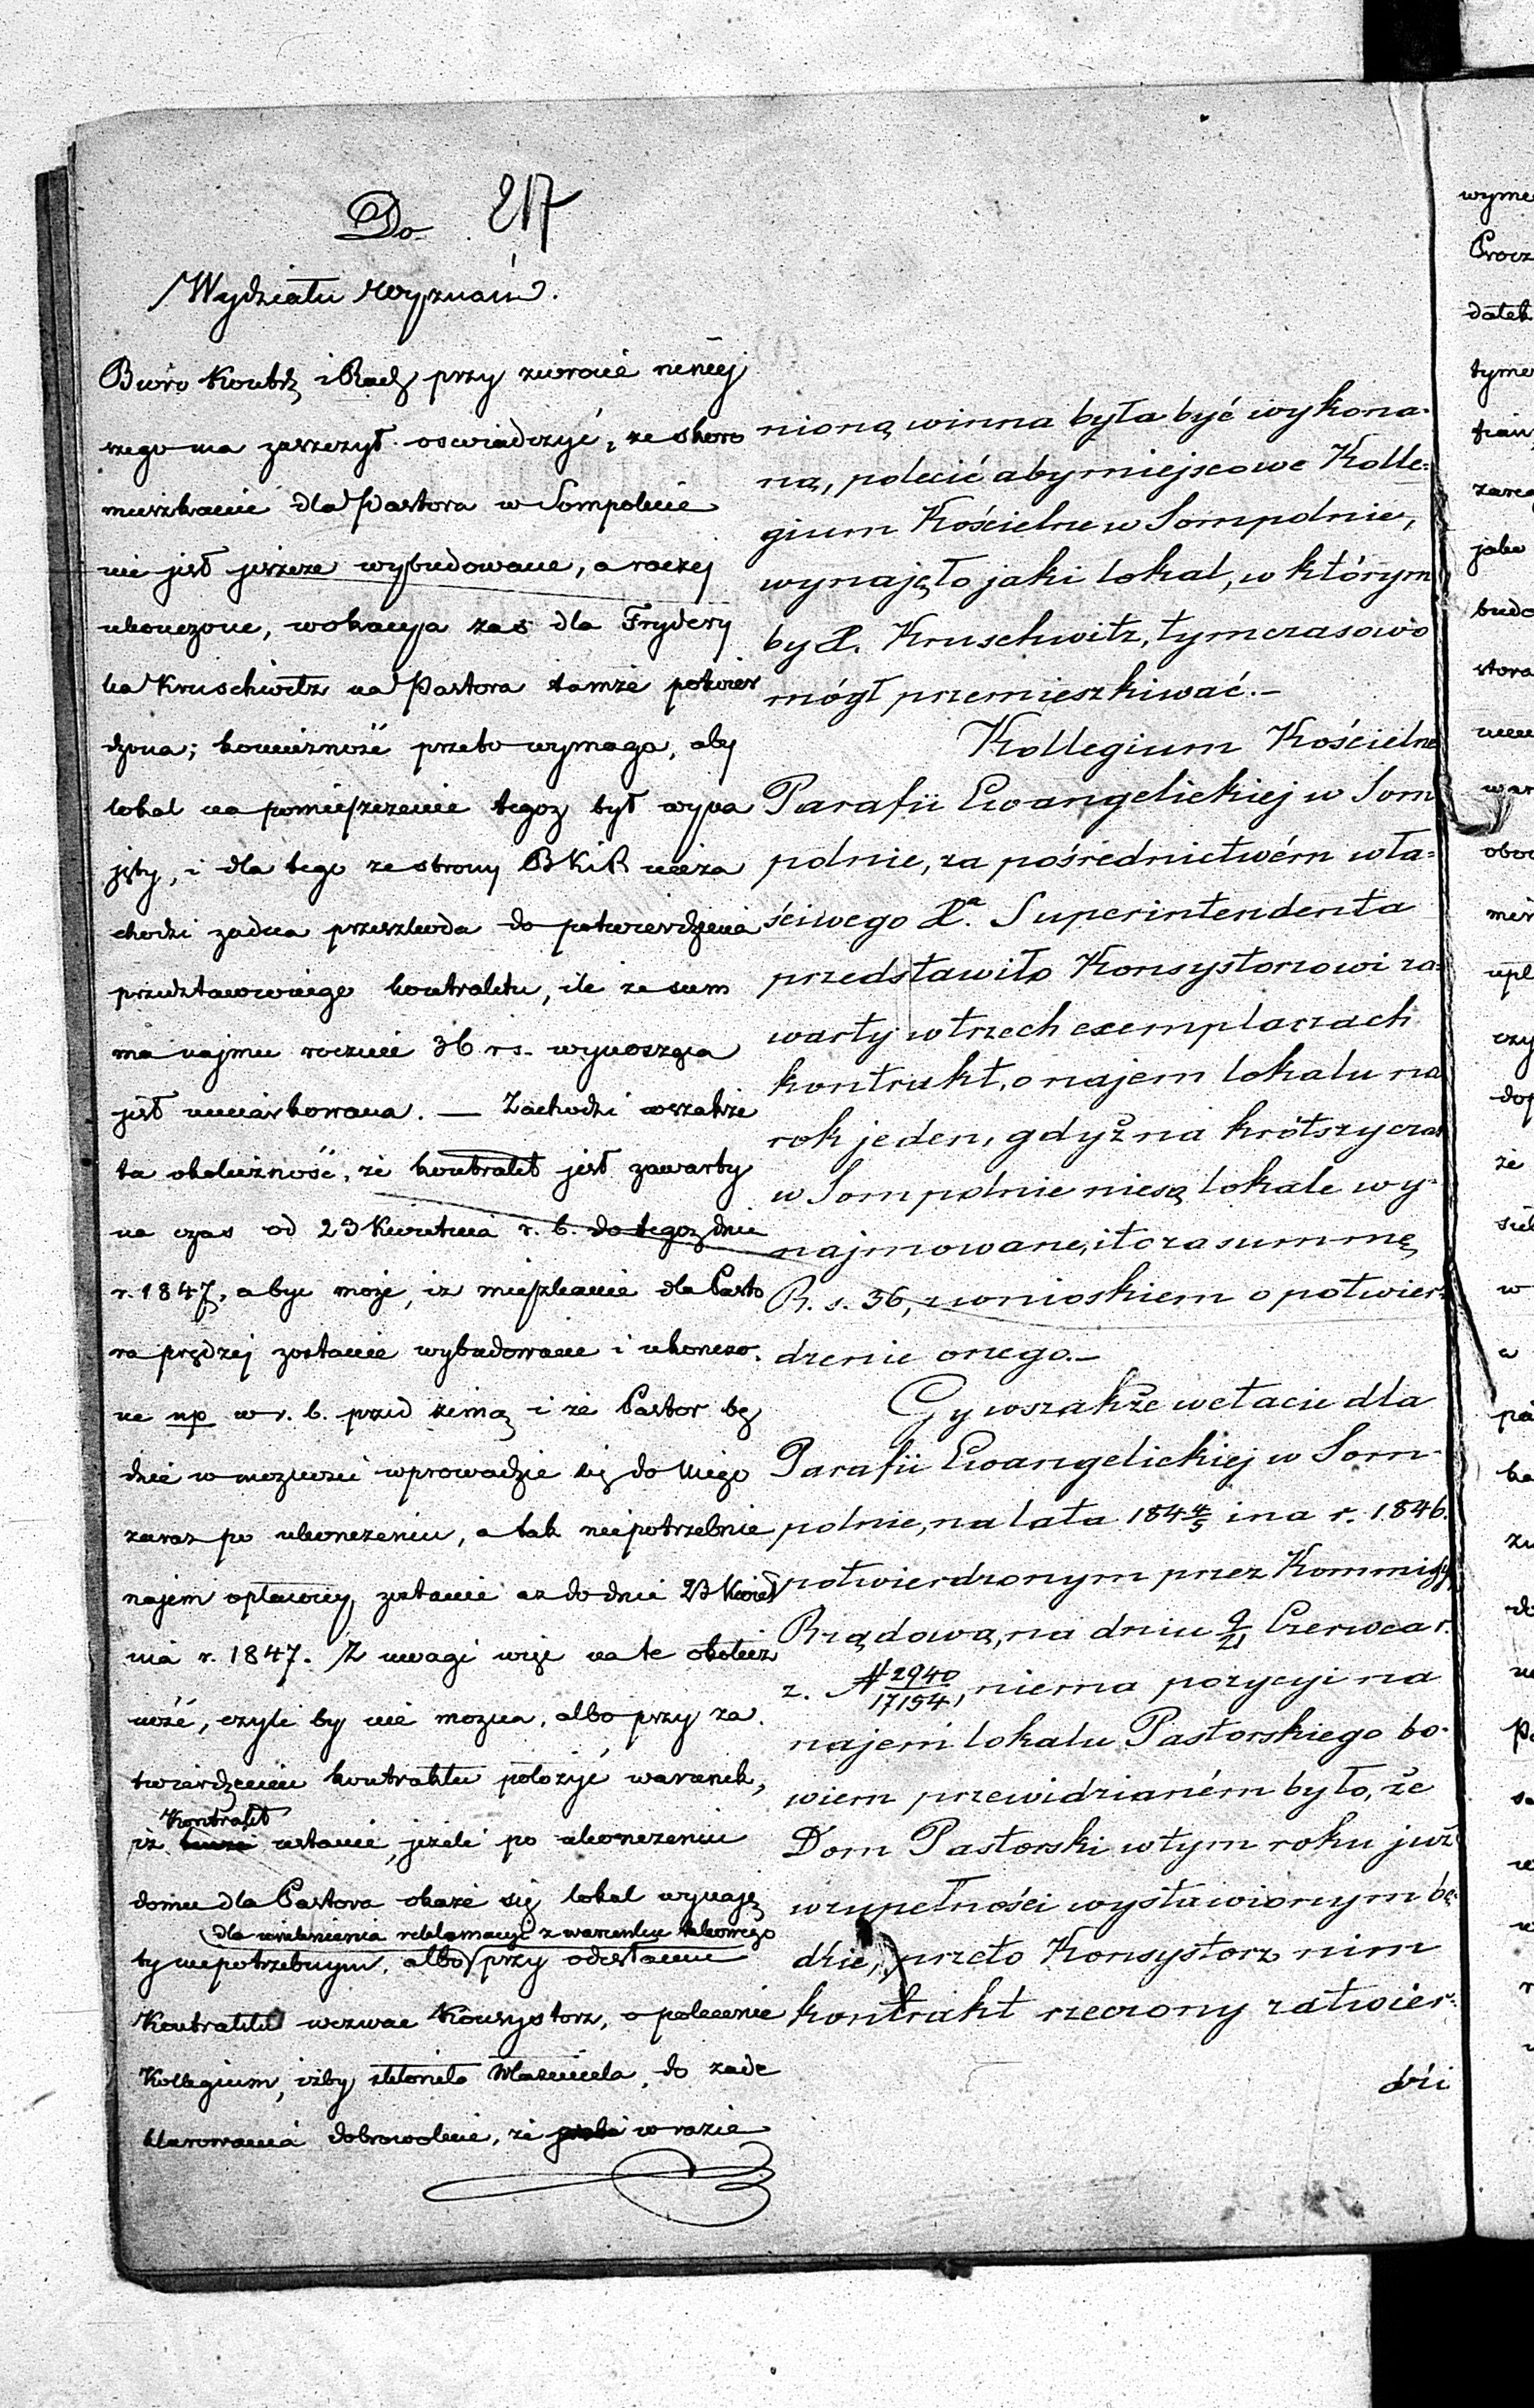 217
Do
Wydziału Wyznań.
Biuro Kontr i Rach przy zwrocie niniej
szego ma zaszczyt oswiadczyć, że skoro
mieszkanie dla Pastora w Sompolnie
nie jest jeszcze wybudowane, a raczej
ukonczone, wokacya zas dla Frydery
ka Kruschwitz na Pastora tamże potwier
dzona; konieczność przeto wymaga, aby
lokal na pomieszczenie tegoz był wyna
jęty, i dla tego ze strony BKiR nieza
chodzi zadna przeszkoda do potwierdzenia
przedstawionego kontraktu, ile ze sum
ma najmu rocznie 36 rs. wynosząca
jest umiarkowana. — Zachodzi wszakże
ta okoliczność, że kontrakt jest zawarty
na czas od 23 Kwietnia r. b. do tegoz dnia
r. 1847, a byc może, iz mieszkanie dla Pasto
ra prędzej zostanie wybudowane i ukonczo
ne np w r. b. przed zimą i że Pastor bę
dzie w mozności wprowadzic się do niego
zaraz po ukonczeniu, a tak niepotrzebnie
najem opłacony zostanie az do dnia 23 Kwiet
nia r. 1847. Z uwagi więc na te okolicz
ność, czyli by nie mozna, albo przy za
twierdzeniu kontraktu położyć warunek,
Kontrakt
iż ustanie, jeżeli po ukonczeniu
domu dla Pastora okaże się lokal wynaję
dla uniknienia reklamacyi z warunku takowego
ty niepotrzebnym, albo przy odesłaniu
Kontraktu wezwac Konsystorz, o polecenie
Kollegium, iżby skłoniło Właściciela, do zade
klarowania dobrowolnie, że w razie
nioną winna była być wykona-
ną, polecić aby miejscowe Kolle-
gium Kościelne w Sompolnie,
wynajęło jaki lokal, w którym
by X. Kruschwitz, tymczasowo
mógł przemieszkiwać.—
Kollegium Kościelne
Parafii Ewangelickiej w Som
polnie, za pośrednictwém wła-
ściwego Xa. Superintendenta
przedstawiło Konsystorzowi za-
warty w trzech exemplarzach
kontrakt, o najem lokalu na
rok jeden, gdyż na krótszy czas
w Sompolnie niesą lokale wy-
najmowane, i to za summę
R. s. 36, z wnioskiem o potwier-
dzenie onego.—
Gy wszakże w etacie dla
Parafii Ewangelickiej w Som-
polnie, na lata 184 4/5 i na r. 1846.
potwierdzonym przez Kommissy
Rządową, na dniu 9/21 Czerwca r.
z. № 2940/17154, niema pozycyi na
najem lokalu Pastorskiego bo-
wiem przewidzianém było, że
Dom Pastorski w tym roku już
w zupełności wystawionym bę-
dzie, przeto Konsystorz nim
kontrakt rzeczony zatwier-
dzi